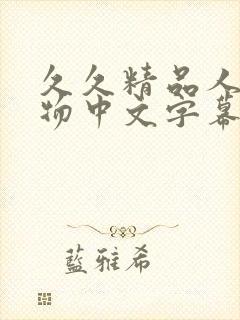 久久精品人
物中文字幕
藍雅希